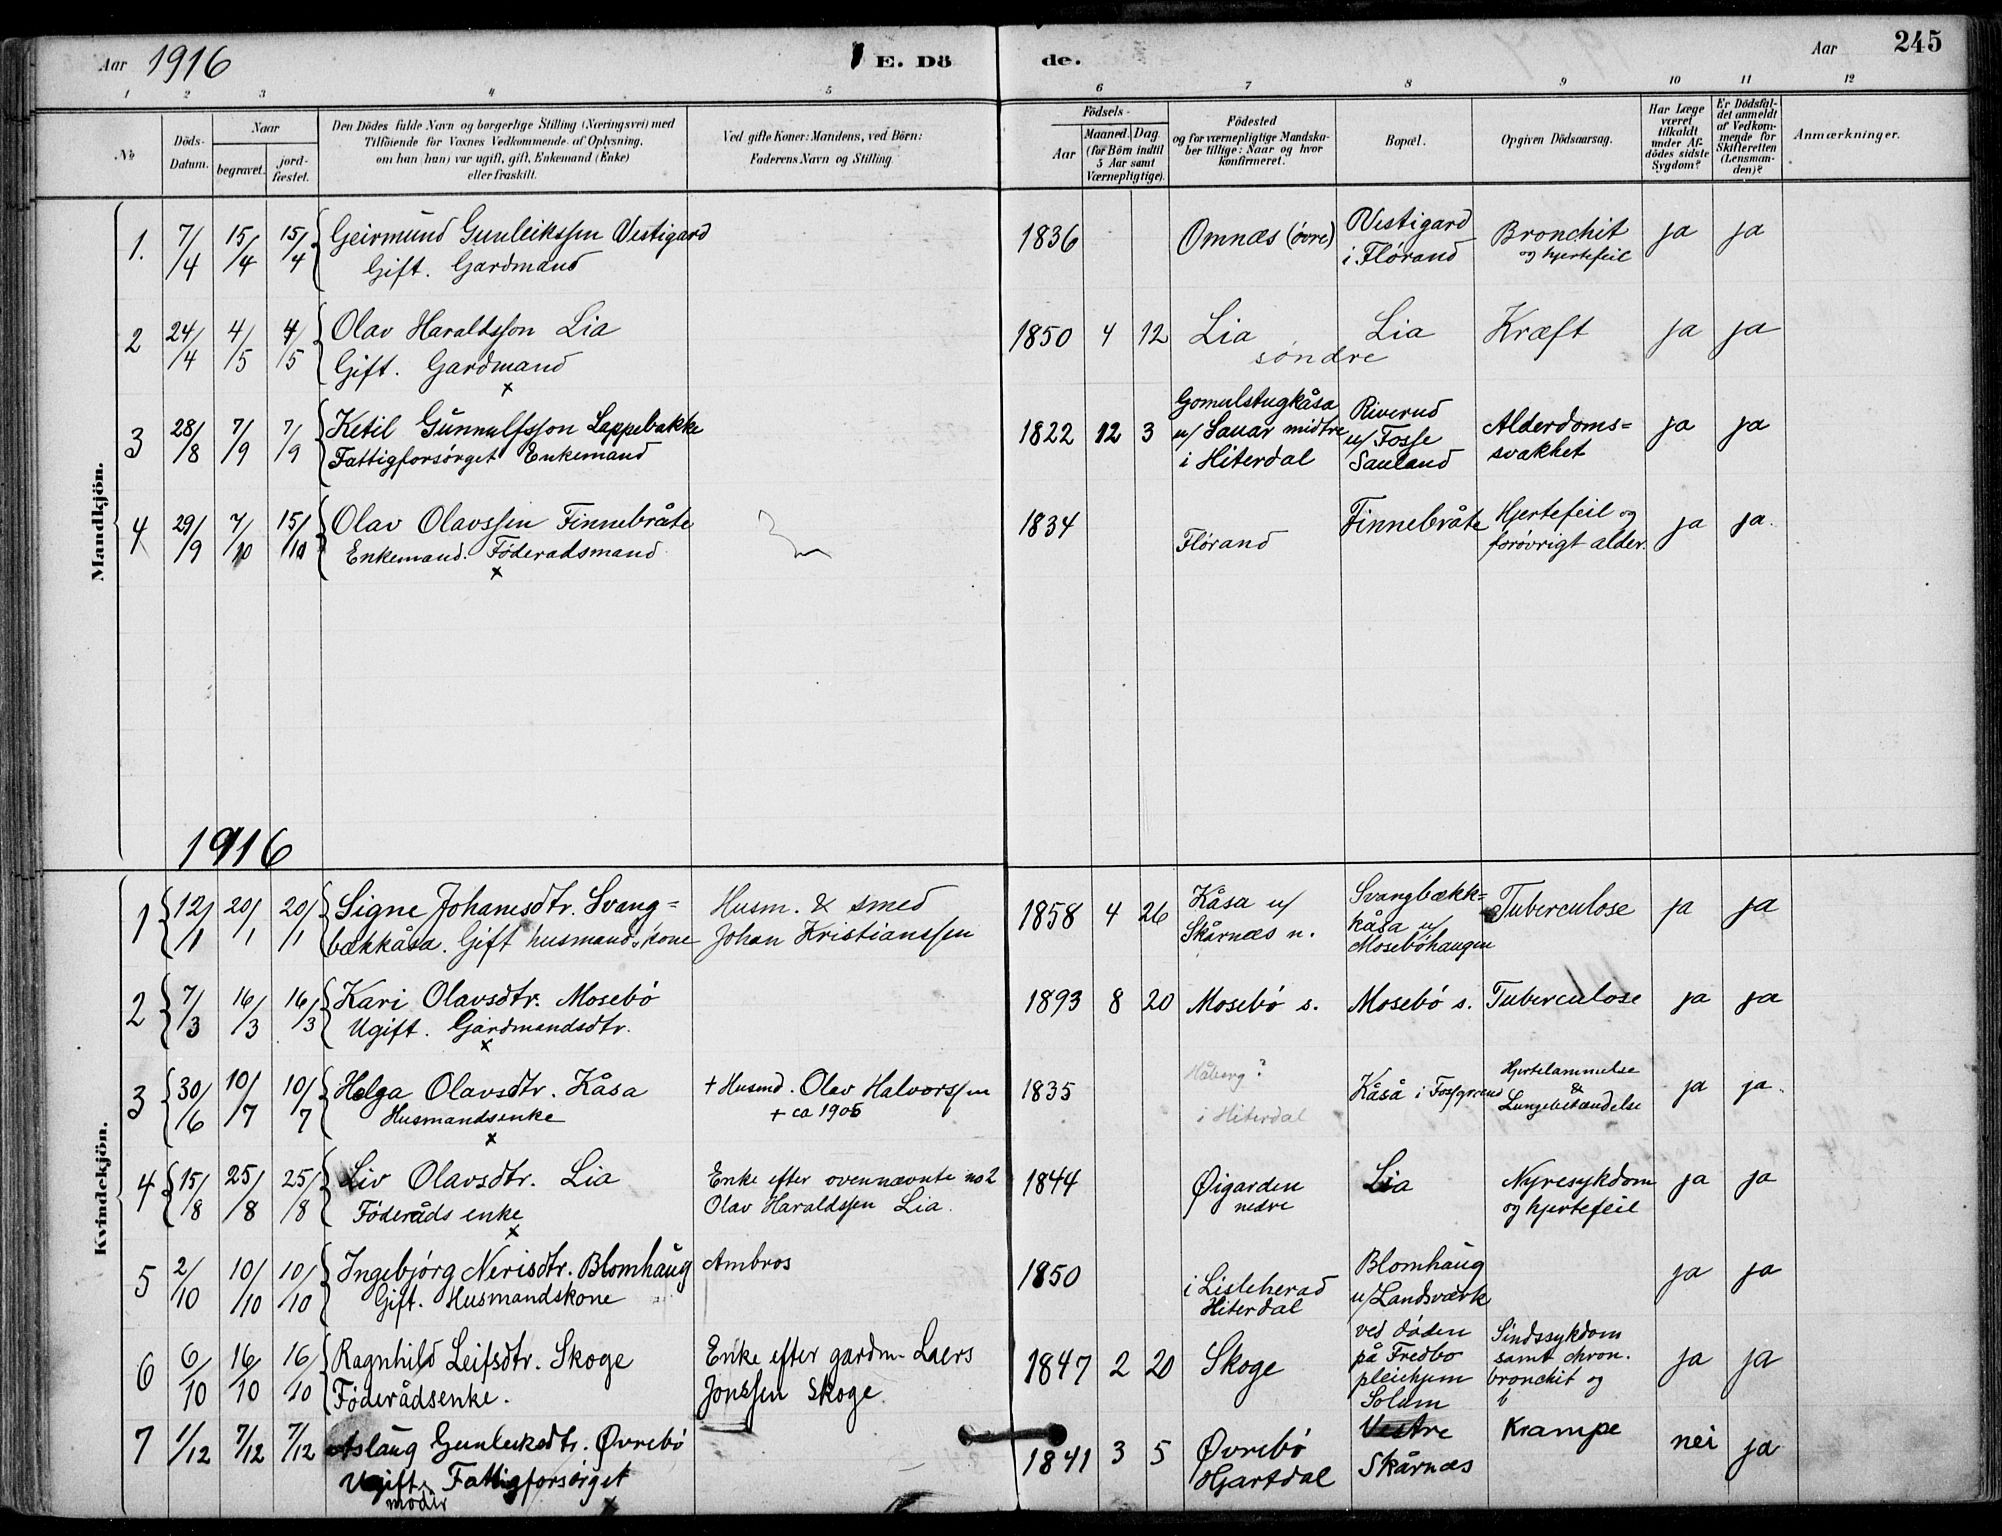 Aar 1916 E. Dö de. Aar 245
1 2 3 4 5 6 7 8 9 10 11 12
№ Döds-Datum. Naar begravet. jordfæstet.
Den Dödes fulde Navn og borgerlige Stilling (Næringsvei) med
Tilföiende for Voxnes Vedkommende af Oplysning,
om han (hun) var ugift, gift, Enkemand (Enke)
eller fraskilt.
Ved gifte Koner: Mandens, ved Börn:
Faderens Navn og Stilling.
Födsels-
Aar Maaned. Dag.
(for Börn indtil
5 Aar samt
Værnepligtige).
Födested
og for værnepligtige Mandska-
ber tillige: Naar og hvor
konfirmeret.
Bopæl.
Opgiven Dödsaarsag.
Har Læge
været
tilkaldt
under Af-
dödes sidste
Sygdom?
Er Dödsfal-
det anmeldt
af Vedkom-
mende for
Skifteretten
(Lensman-
den)?
Anmærkninger.
Mandkjön.
1. 7/4 15/4 15/4 Geirmund Gunleikssen Vestigard 1836 Omnæs (övre) Vestigard Bronchit ja ja
Gift. Gardmand i Flörand og hjertefeil
2 24/4 4/5 4/5 Olav Haraldsson Lia 1850 4 12 Lia Lia Kræft ja ja
Gift. Gardmand söndre
x
3 28/8 7/9 7/9 Ketil Gunnulfsson Loppebakke 1822 12 3 Gomulstugkåsa Riverud Alderdoms= ja ja
Fattigforsörget Enkemand u/ Sauar midtre u/ Fosse svakhet
i Hiterdal Sauland
4 29/9 7/10 15/10 Olav Olavssen Finnebråte 1834 Flörand Finnebråte Hjertefeil og ja ja.
Enkemand. Föderadsmand forövrigt alder.
x
1916
Kvindekjön.
1 12/1 20/1 20/1 Signe Johanesdtr. Svang= Husm. & smed 1858 4 26 Kåsa u/ Svangbækk= Tuberculose ja ja
bækkåsa. Gift husmandskone Johan Kristianssen Skårnæs n. kåsa u/
Moseböhaugen
2 7/3 16/3 16/3 Kari Olavsdtr. Mosebö 1893 8 20 Mosebö s. Mosebö s. Tuberculose ja ja
Ugift. Gardmandsdtr.
x
3 30/6 10/7 10/7 Helga Olavsdtr. Kåsa + Husmd. Olav Halvorssen 1835 Håberg? Kåså i Fosgrend Hjertelammelse ja ja.
Husmandsenke + ca 1905 i Hiterdal & Lungebetændelse
x
4 15/8 25/8 25/8 Liv Olavsdtr. Lia Enke efter ovennævnte no 2 1844 Øigarden Lia Nyresykdom ja ja
Föderåds enke Olav Haraldssen Lia. nedre og hjertefeil
x
5 2/10 10/10 10/10 Ingebjörg Nerisdtr. Blomhaug Ambros 1850 i Lisleherad Blomhaug ja ja
Gift. Husmandskone Hiterdal u/ Landsværk
6 6/10 16/10 16/10 Ragnhild Leifsdtr. Skoge Enke efter gardm. Laers 1847 2 20 Skoge ved döden Sindssykdom ja ja
Föderådsenke. Jonssen Skoge på Fredbo samt chron.
pleiehjem bronchit og
Solum
7 1/12 7/12 7/12 Aslaug Gunleiksdtr. Øvrebö 1841 3 5 Øvrebö Vestre Krampe nei ja
Ugift. Fattigforsörget Hjartdal Skårnæs
moder x